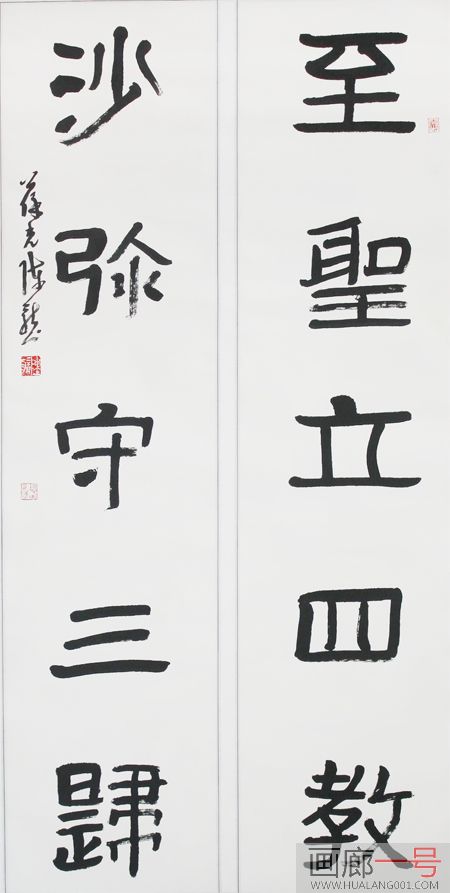 至聖立四教
沙弥守三歸
画廊一号
WWW.HUALANG001.COM